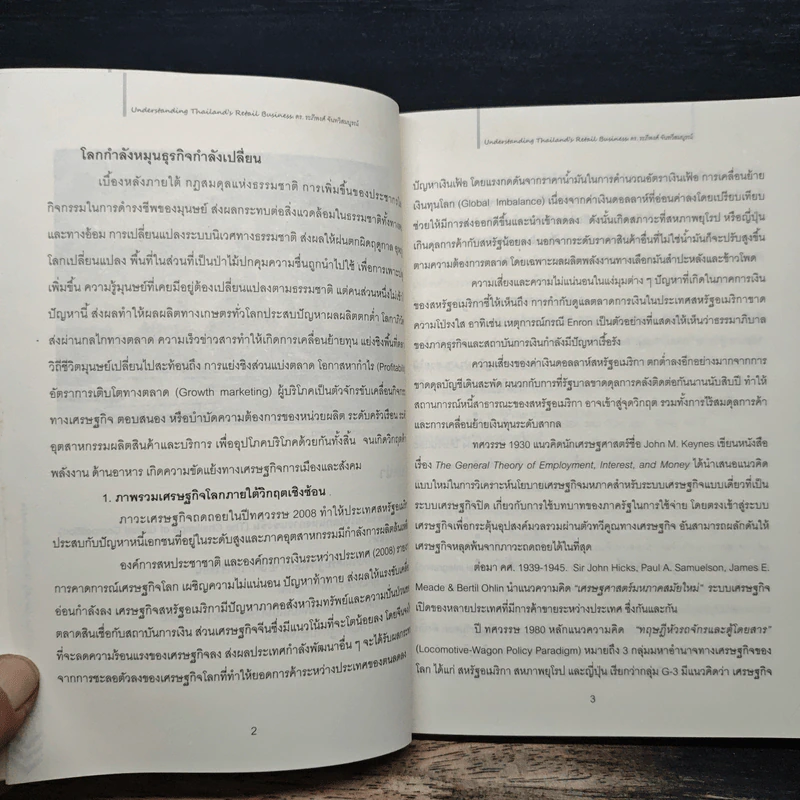 Understanding Thailand's Retail Business ดร.
โลกกำลังหมุนธุรกิจกำลังเปลี่ยน
เบื้องหลังภายใต้ กฎสมดุลแห่งธรรมชาติ การเพิ่มขึ้นของประชากร
กิจกรรมในการดำรงชีพของมนุษย์ ส่งผลกระทบต่อสิ่งแวดล้อมในธรรมชาติทั้งทาง
และทางอ้อม การเปลี่ยนแปลงระบบนิเวศทางธรรมชาติ ส่งผลให้ฝนตกผิดฤดูกาล
โลกเปลี่ยนแปลง พื้นที่ในส่วนที่เป็นป่าไม้ปกคุมความชื่นถูกนำไปใช้ เพื่อการเพาะ
เพิ่มขึ้น ความรู้มนุษย์ที่เคยมีอยู่ต้องเปลี่ยนแปลงตามธรรมชาติ แต่คนส่วนหนึ่ง
ปัญหานี้ ส่งผลทำให้ผลผลิตทางเกษตรทั่วโลกประสบปัญหาผลผลิตตกต่ำ
ส่งผ่านกลไกทางตลาด ความเร็วข่าวสารทำให้เกิดการเคลื่อนย้ายทุน แย่งชิงพื้นที่
วิถีชีวิตมนุษย์เปลี่ยนไปสะท้อนถึง การแย่งชิงส่วนแบ่งตลาด โอกาสหากำไร
อัตราการเติบโตทางตลาด (Growth marketing) ผู้บริโภคเป็นตัวจักรขับเคลื่อน
ทางเศรษฐกิจ ตอบสนอง หรือบำบัดความต้องการของหน่วยผลิต ระดับครัวเรือน
อุตสาหกรรมผลิตสินค้าและบริการ เพื่ออุปโภคบริโภคด้วยกันทั้งสิ้น จนเกิดวิกฤต
พลังงาน ด้านอาหาร เกิดความขัดแย้งทางเศรษฐกิจการเมืองและสังคม
1. ภาพรวมเศรษฐกิจโลกภายใต้วิกฤตเชิงซ้อน
ภาวะเศรษฐกิจถดถอยในปีทศวรรษ 2008 ทำให้ประเทศสหรัฐอเมริกา
ประสบกับปัญหาหนี้เอกชนที่อยู่ในระดับสูงและภาคอุตสาหกรรมมีกำลังการผลิต
องค์การสหประชาชาติ และองค์กรการเงินระหว่างประเทศ (2008)
การคาดการณ์เศรษฐกิจโลก เผชิญความไม่แน่นอน ปัญหาท้าทาย ส่งผลให้แรงขับ
อ่อนกำลังลง เศรษฐกิจสหรัฐอเมริกามีปัญหาภาคอสังหาริมทรัพย์และความ
ตลาดสินเชื่อกับสถาบันการเงิน ส่วนเศรษฐกิจจีนซึ่งมีแนวโน้มที่จะโตน้อยลง
ที่จะลดความร้อนแรงของเศรษฐกิจลง ส่งผลประเทศกำลังพัฒนาอื่น ๆ จะได้รับ
จากการชะลอตัวลงของเศรษฐกิจโลกที่ทำให้ยอดการค้าระหว่างประเทศของตนลดลง
2
Understanding Thailand's Retail Business ดร.
ปัญหาเงินเฟ้อ โดยแรงกดดันจากราคาน้ำมันในการคำนวณอัตราเงินเฟ้อ การเคลื่อนย้าย
เงินทุนโลก (Global Imbalance) เนื่องจากค่าเงินดอลลาห์ที่อ่อนค่าลงโดยเปรียบเทียบ
ช่วยให้มีการส่งออกดีขึ้นและนำเข้าลดลง ดังนั้นเกิดสภาวะที่สหภาพยุโรป หรือญี่ปุ่น
เกินดุลการค้ากับสหรัฐน้อยลง นอกจากระดับราคาสินค้าอื่นที่ไม่ใช่น้ำมันก็จะปรับสูงขึ้น
ตามความต้องการตลาด โดยเฉพาะผลผลิตพลังงานทางเลือกมันสำปะหลังและข้าวโพด
ความเสี่ยงและความไม่แน่นอนในแง่มุมต่าง ๆ ปัญหาที่เกิดในภาคการเงิน
ของสหรัฐอเมริกาชี้ให้เห็นถึง การกำกับดูแลตลาดการเงินในประเทศสหรัฐอเมริกาขาด
ความโปร่งใส อาทิเช่น เหตุการณ์กรณี Enron เป็นตัวอย่างที่แสดงให้เห็นว่าธรรมาภิบาล
ของภาคธุรกิจและสถาบันการเงินกำลังมีปัญหาเรื้อรัง
ความเสี่ยงของค่าเงินดอลลาห์สหรัฐอเมริกา ตกต่ำลงอีกอย่างมากจากการ
ขาดดุลบัญชีเดินสะพัด ผนวกกับการที่รัฐบาลขาดดุลการคลังติดต่อกันนานนับสิบปี ทำให้
สถานการณ์หนี้สาธารณะของสหรัฐอเมริกา อาจเข้าสู่จุดวิกฤต รวมทั้งการไร้สมดุลการค้า
และการเคลื่อนย้ายเงินทุนระดับสากล
ทศวรรษ 1930 แนวคิดนักเศรษฐศาสตร์ชื่อ John M. Keynes เขียนหนังสือ
เรื่อง The General Theory of Employment, Interest, and Money ได้นำเสนอแนวคิด
แบบใหม่ในการวิเคราะห์นโยบายเศรษฐกิจมหภาคสำหรับระบบเศรษฐกิจแบบเดี่ยวที่เป็น
ระบบเศรษฐกิจปิด เกี่ยวกับการใช้บทบาทของภาครัฐในการใช้จ่าย โดยตรงเข้าสู่ระบบ
เศรษฐกิจเพื่อกระตุ้นอุปสงค์มวลรวมผ่านตัวทวีคูณทางเศรษฐกิจ อันสามารถผลักดันให้
เศรษฐกิจหลุดพ้นจากภาวะถดถอยได้ในที่สุด
ต่อมา คศ. 1939-1945. Sir John Hicks, Paul A. Samuelson, James E.
Meade & Bertil Ohlin นำแนวความคิด "เศรษฐศาสตร์มหภาคสมัยใหม่" ระบบเศรษฐกิจ
เปิดของหลายประเทศที่มีการค้าขายระหว่างประเทศ ซึ่งกันและกัน
ปี ทศวรรษ 1980 หลักแนวความคิด "ทฤษฎีหัวรถจักรและตู้โดยสาร"
(Locomotive-Wagon Policy Paradigm) หมายถึง 3 กลุ่มมหาอำนาจทางเศรษฐกิจของ
โลก ได้แก่ สหรัฐอเมริกา สหภาพยุโรป และญี่ปุ่น เรียกว่ากลุ่ม G-3 มีแนวคิดว่า เศรษฐกิจ
3